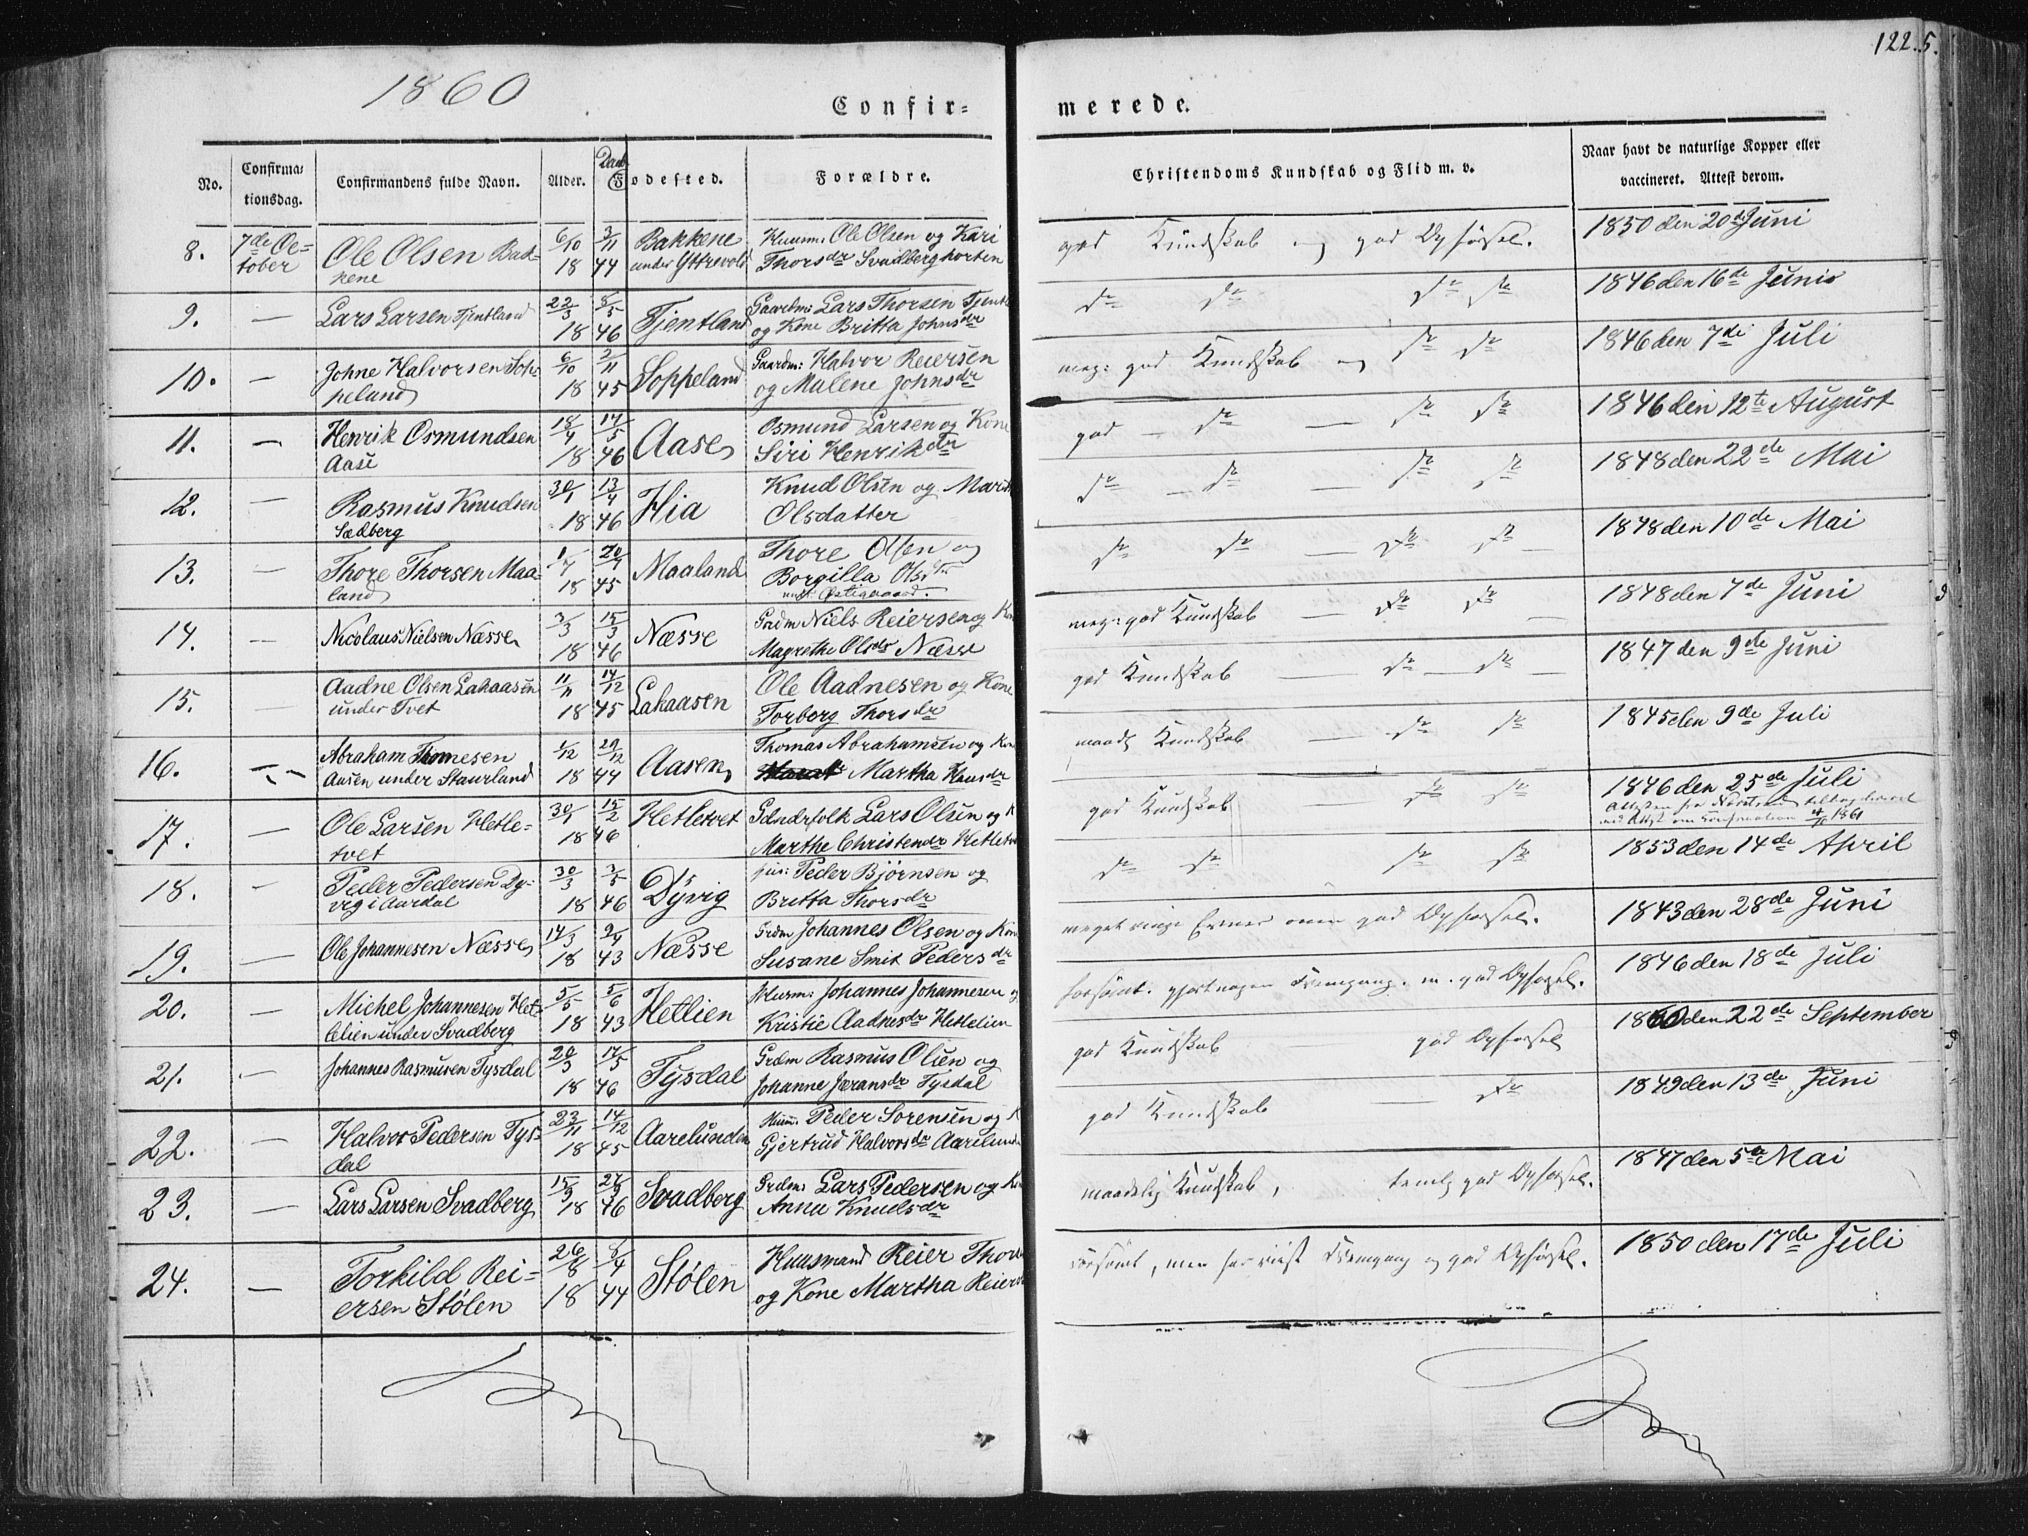 1860
122.
5.
Confir=
merede.
No.
Confirma=
tionsdag.
Confirmandens fulde Navn.
Alder.
Fødested.
Forældre.
Christendoms Kundskab og Flid m. v.
Naar havt de naturlige Kopper eller
vaccineret. Attest derom.
8. 7de Oc= Ole Olsen Bak= 6/10 3/11 Bakkene Huusm: Ole Olsen og Kari god Kundskab og god Opførsel. 1850 den 20de Juni
tober kene 18 44 under Yttrevold Thorsdr Svadberghorten
9. — Lars Larsen Tjentland 22/3 8/5 Tjentland Gaardm: Lars Thorsen Tjentl do do do do 1846 den 16de Junio
18 46 og Kone Britta Johnsdr
10. — Johne Halvorsen Sop= 6/10 2/11 Soppeland Gaardm: Halvor Reiersen meg: god Kundskab og do do 1846 den 7de Juli
peland 18 45 og Malene Johnsdr
11. — Henrik Osmundsen 18/4 14/5 Aase Osmund Larsen og Kone god — do — do do 1846 den 12te August
Aase 18 46 Siri Henrikdtr
12. — Rasmus Knudsen 30/1 13/4 Hia Knud Olsen og Marth do — do — do do 1848 den 22de Mai
Sædberg 18 46 Olsdatter
13. — Thore Thorsen Maa= 1/7 20/7 Maaland Thore Olsen og do do — do do — 1848 den 10de Mai
land 18 45 Borgilla Olsdtr
14. — Nicolaus Nielsen Næsse 3/3 15/3 Næsse Grdm Niels Reiersen og K meg: god Kundskab — do do — 1848 den 7de Juni
18 46 Magrethe Olsdr Næsse
15. — Aadne Olsen Lahaasen 11/11 14/12 Lahaasen Ole Aadnesen og Kone god Kundskab — do — do 1847 den 9de Juni
under Tvet 18 45 Torborg Thorsdr
16. — Abraham Thomesen 1/12 29/12 Aasen Thomas Abrahamsen og Kon maadl Kundskab do do 1845 den 9de Juli
Aasen under Staurland 18 44 Martha Hansdr
17. — Ole Larsen Hetle= 30/1 15/2 Hetletvet Grdmdrfolk Lars Olsen og K god Kundskab do do 1846 den 25de Juli
tvet 18 46 Marthe Christendr Hetletv
18. — Peder Pedersen Dy= 30/3 3/5 Dyvig Peder Bjørnsen og do do do do 1853 den 14de April
vig i Aardal 18 46 Britta Thorsdr
19. — Ole Johannesen Næsse 14/3 2/4 Næsse Grdm Johannes Olsen og Kone meget ringe Evner men god Opførsel. 1843 den 28de Juni
18 43 Susane Smit Pedersdr
20. — Michel Johannesen Het= 5/5 5/6 Hetlien Husm: Johannes Johannesen og forsømt. gjort nogen Fremgang. m. god Opførsel. 1846 den 18de Juli
lelien under Svadberg 18 43 Kristie Aadnesdr Hetlelien
21. — Johannes Rasmusen Tysdal 20/3 17/5 Tysdal Grdm Rasmus Olsen og god Kundskab god Opførsel 1860 den 22de September
18 46 Johanne Jøransdr Tysdal
22. — Halvor Pedersen Tys= 23/11 14/12 Aarelunden Husm: Peder Sorensen og K god Kundskab — do 1849 den 13de Juni
dal 18 45 Gjertrud Halvorsdr Aarelunden
23. — Lars Larsen Svadberg 15/3 27/3 Svadberg Grdm: Lars Pedersen og Ko maadelig Kundskab, temlig god Opførsel. 1847 den 5te Mai
18 46 Anna Knudsdr
24. — Torkild Rei= 26/8 8/4 Stølen Huusmand Reier Thors forsømt, men har viist Fremgang og god Opførsel. 1850 den 17de Juli
ersen Stølen 18 44 og Kone Martha Reiers